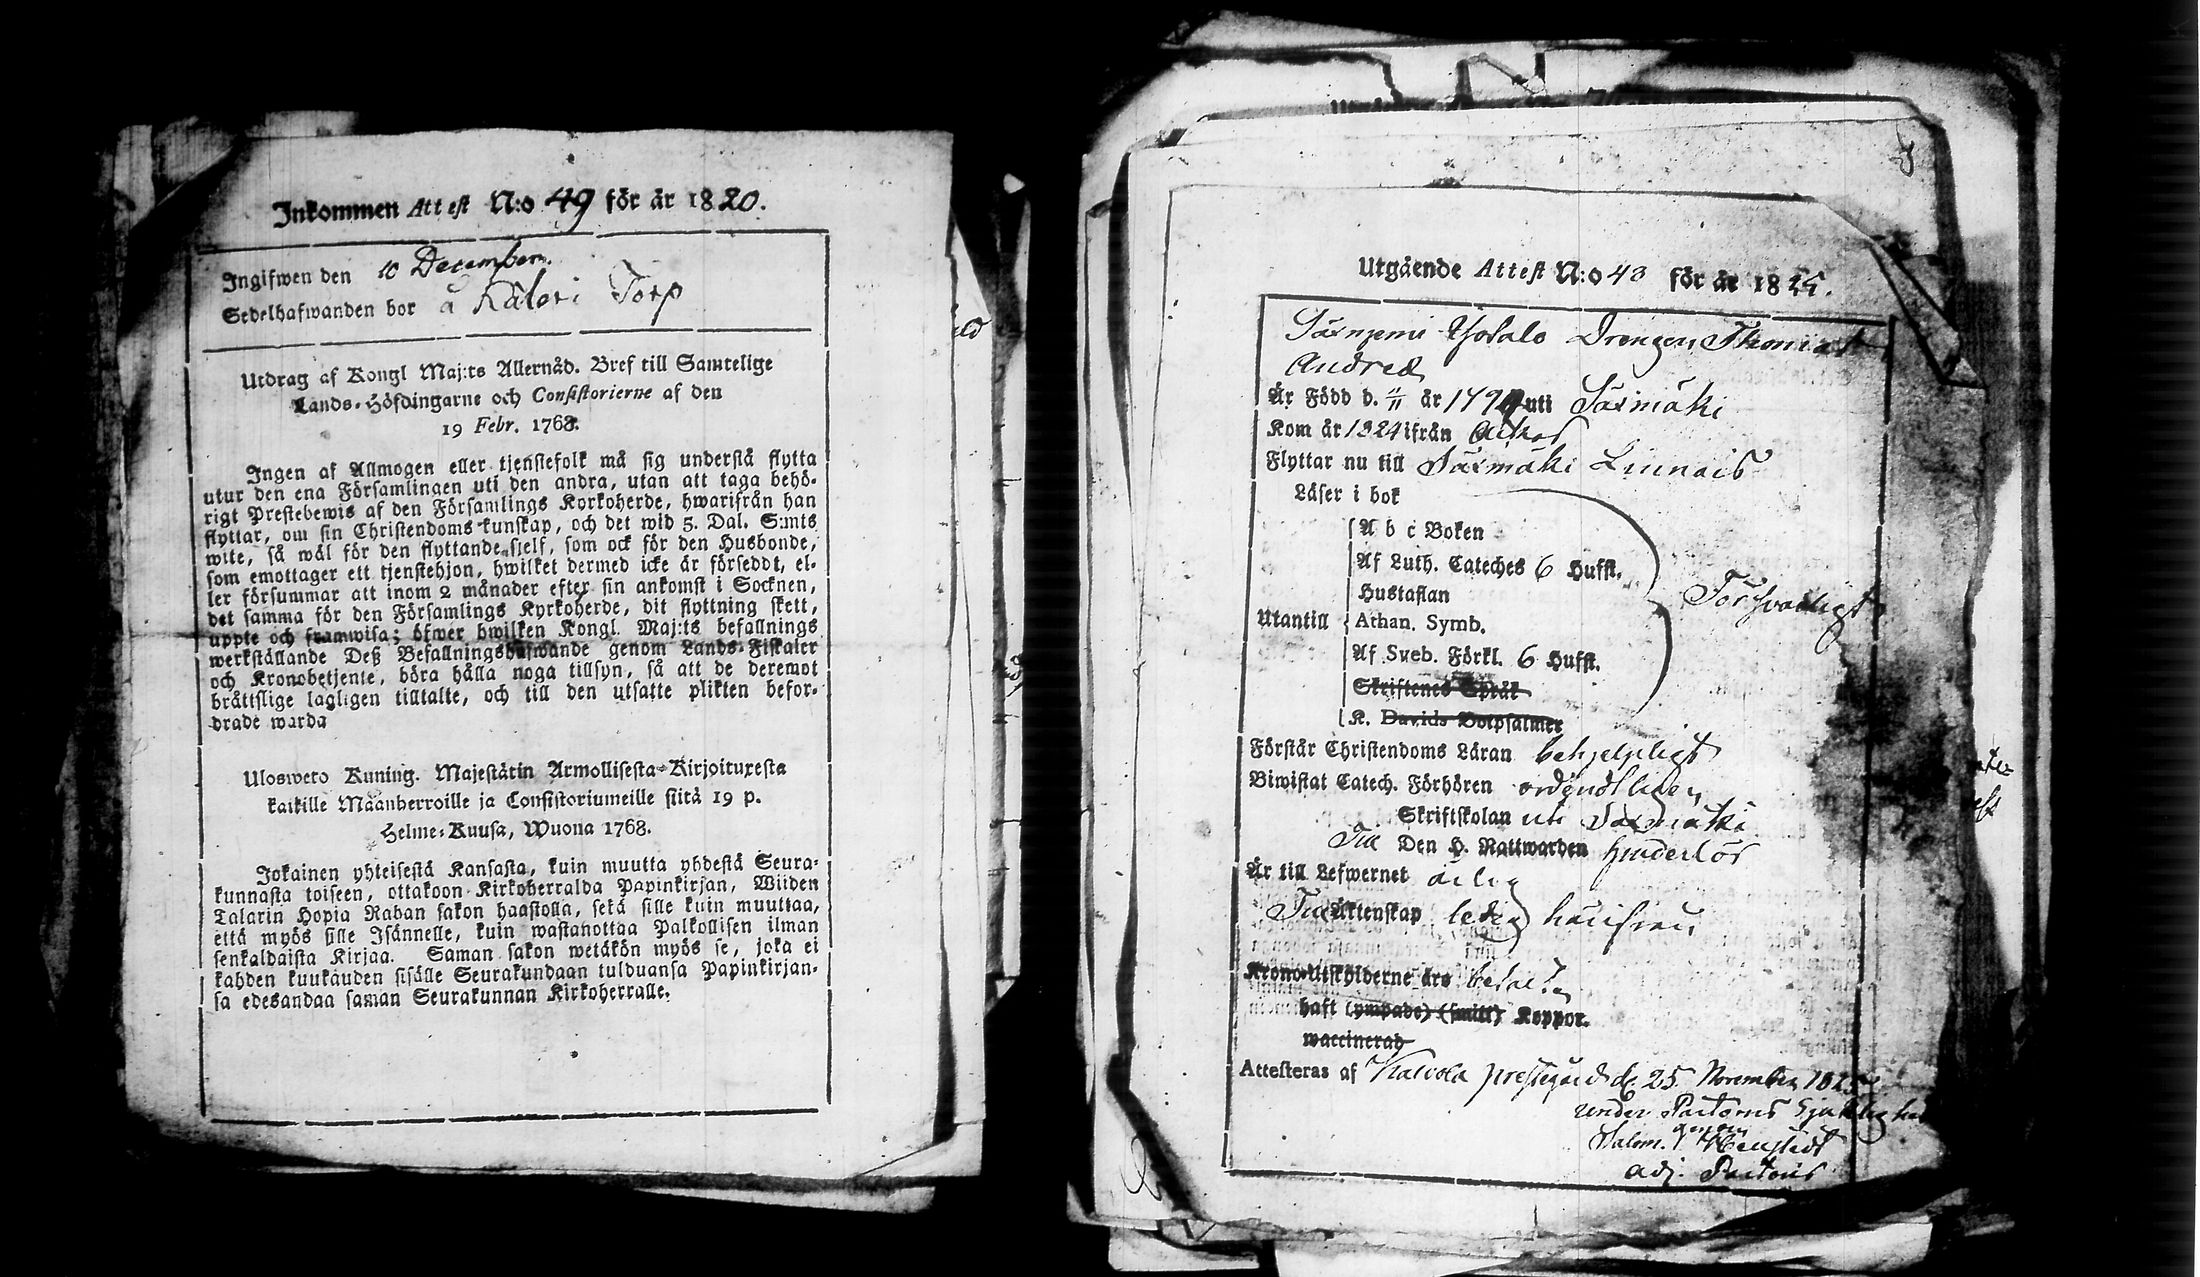 Inkommen Attest N:o 49 för år 1820.
Ingifwen den 10 December.
Sedelhafwanden bor å Käleri Torp
Utdrag af Kongl Maj:ts Allernåd. Bref till Samtelige
Lands-Höfdingarne och Consistorierne af den
19 Febr. 1768.
Ingen af Allmogen eller tjenstefolk må sig understå flytta
utur den ena Församlingen uti den andra, utan att taga behö-
rigt Prestebewis af den Församlings Kyrkoherde, hwarifrån han
flyttar, om sin Christendoms kunskap, och det wid 5. Dal. S:mts
wite, så wäl för den flyttande sjelf, som ock för den Husbonde,
som emottager ett tjenstehjon, hwilket dermed icke är förseddt, el-
ler försummar att inom 2 månader efter sin ankomst i Socknen,
det samma för den Församlings Kyrkoherde, dit flyttning skett,
uppte och framwisa; öfwer hwilken Kongl. Maj:ts befallnings
werkställande Deß Befallningshafwande genom Lands-Fiskaler
och Kronobetjente, böra hålla noga tillsyn, så att de deremot
bråttslige lagligen tilltalte, och till den utsatte plikten befor-
drade warda
Ulosweto Kuning. Majestätin Armollisesta-Kirjoituxesta
kaikille Maanherroille ja Consistoriumeille siitä 19 p.
Helme-Kuusa, Wuona 1768.
Jokainen yhteisestä Kansasta, kuin muutta yhdestä Seura-
kunnasta toiseen, ottakoon Kirkoherralda Papinkirjan, Wiiden
Talarin Hopia Rahan sakon haastolla, sekä sille kuin muuttaa,
että myös sille Isännelle, kuin wastanottaa Palkollisen ilman
senkaldaista Kirjaa. Saman sakon wetäkön myös se, joka ei
kahden kuukauden sisälle Seurakundaan tulduansa Papinkirjan-
sa edesandaa saman Seurakunnan Kirkoherralle.
Utgående Attest N:o 43 för år 1825.
Drengen Thomas
Andreæ
Är Född d. 4/11 år 179 uti Säxmäki
Kom år 1824 ifrån
Flyttar nu till Säxmäki Linnais
Läser i bok
A b c Boken
Af Luth. Cateches 6 Hufst.
Hustaflan
Försvarligt
Utantill Athan. Symb.
Af Sveb. Förkl. 6 Hufst.
Skriftenes Språk
K. Davids Botpsalmer
Förstår Christendoms Läran behjelpligt
Biwistat Catech. Förhören ordentligen
Skriftskolan uti Säxmäki
Till Den H. Nattwarden hinderlös
Är till Lefwernet ärlig
Till Äktenskap ledig häifrån
Krono-Utskylderne äro betalte
haft (ympade) (smitt) Koppor.
waccinerad
Attesteras af Kalvola prestegård d. 25 November 1825
under Pastorns Sjuklighet
genom
Salom.
adj. Pastoris